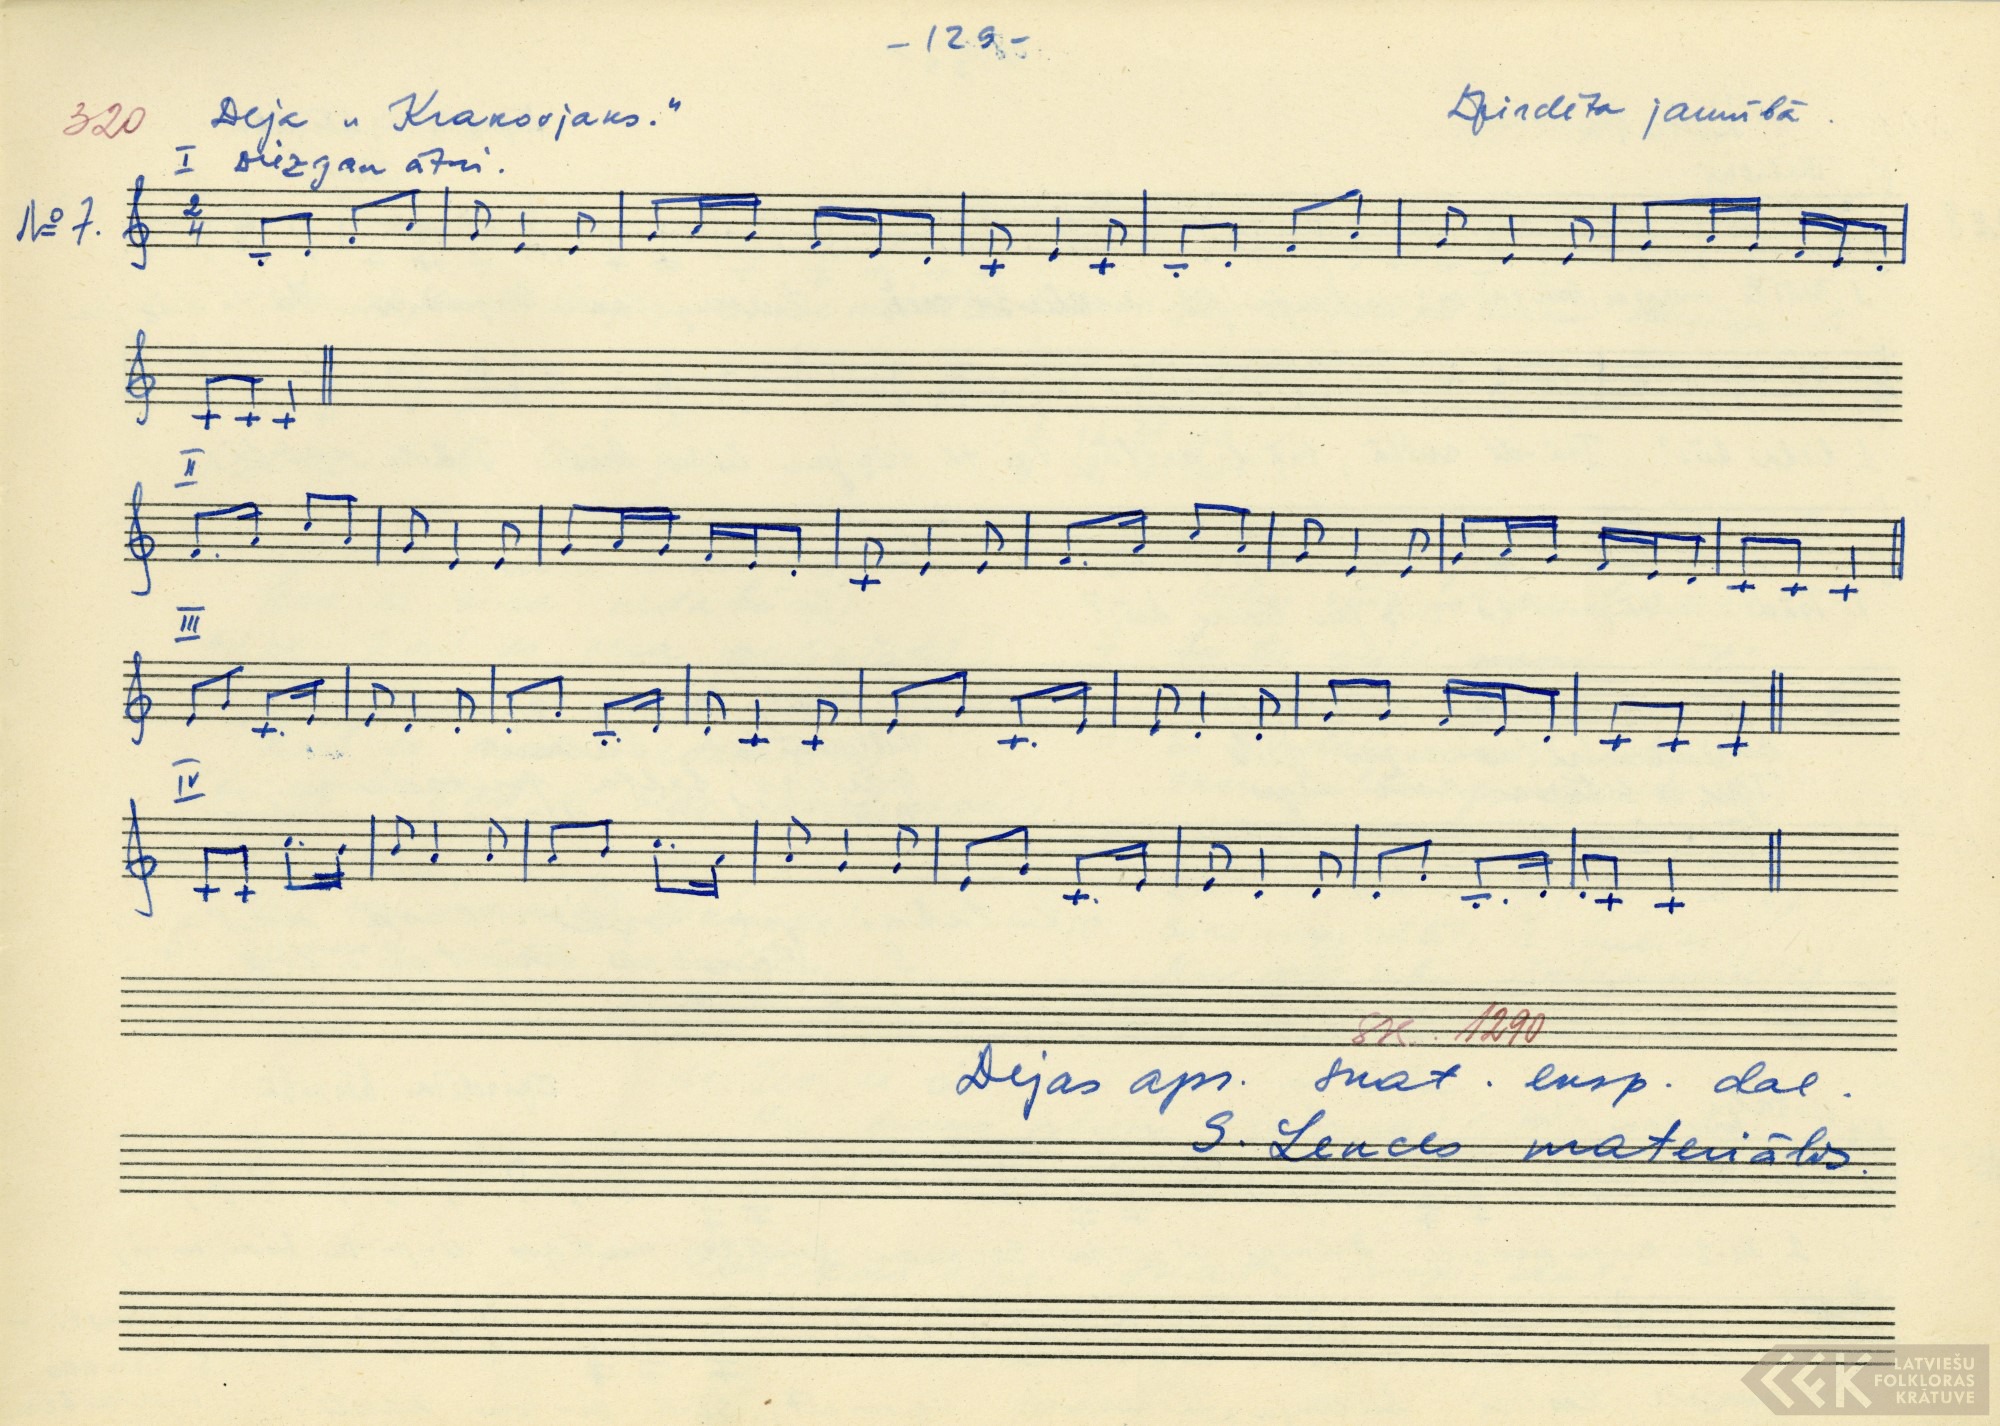 - 129 -
320 Deja „Krakovjaks." Dzirdēta jaunībā.
I Diezgan ātri.
№ 7. 2/4
II
III
IV
sk. 1290
Dejas aps. skat. eksp. dal.
S. Lences materiālos.
LATVIEŠU
FOLKLORAS
KRĀTUVE